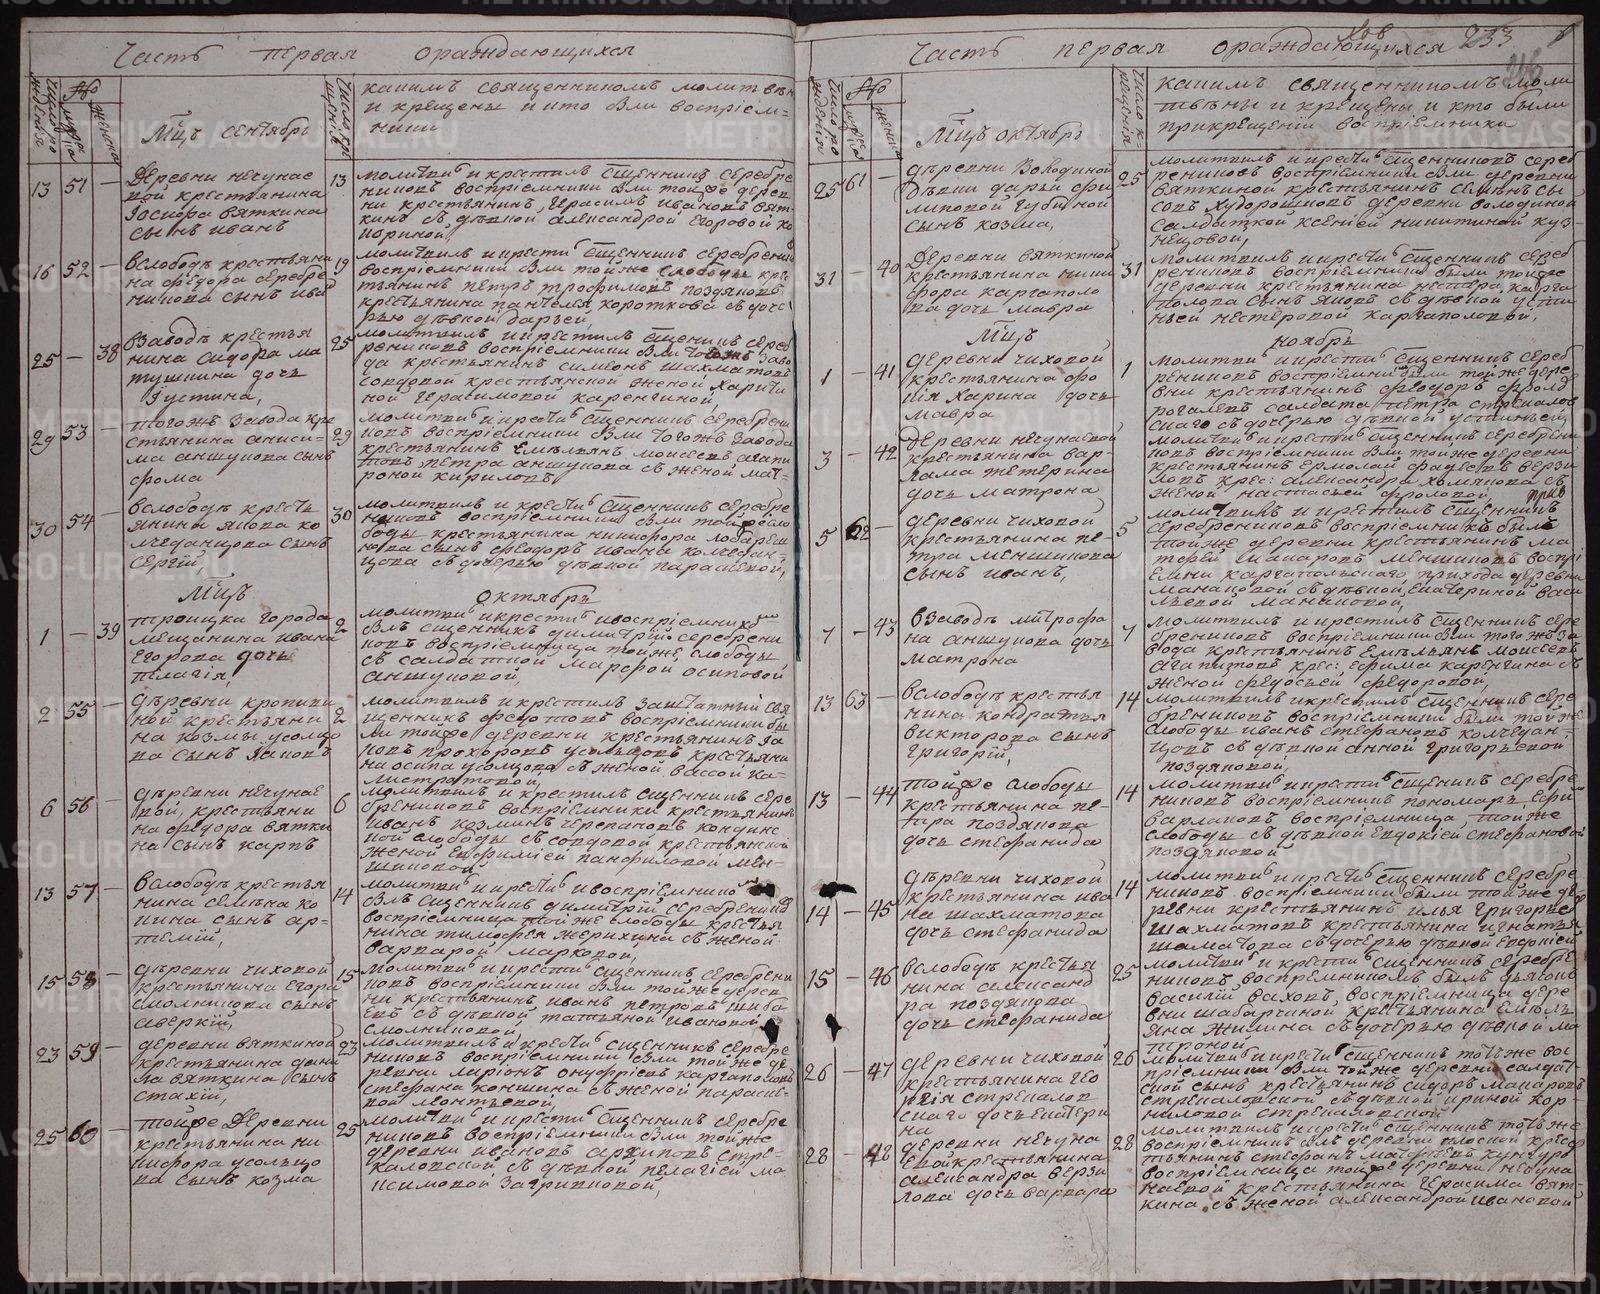 Часть первая ораждающихся
Мцъ сентябрь
какимъ священникомъ молитвѣн
и крещены и кто были воспріем-
ники
13 51 — Деревни нечунае
вой крестьянина
Іосифа вяткина
сынъ иванъ
13 молитвилъ и крестилъ Сщенникъ Серебре
никовъ воспріемники были тойже дерев
ни крестьянинъ Герасимъ ивановъ вят-
кинъ съ дѣвкой александрой Егоровой
16 52 — Вслободѣ крестьяни
на федора серебре
никова сынъ
19 молитвилъ и крести Сщенникъ Серебрени
воспріемники были тойже слободы кре
тьянинъ петръ трофимовъ поздяновъ
крестьянина пантелея короткова съ дочс
рью дѣвкой дарьей
25 — 38 Взаводѣ крестья
нина сидора ма
тушкина дочь
Іустина,
25 молитвилъ и крестилъ Сщенникъ Сереб
рениковъ воспріемники были тогожъ заво
да крестьянинъ симеонъ шахматовъ
совдовой крестьянской женой Харити
ной Герасимовой каренгиной,
29 53 — тогожъ завода кре
стьянина аниси-
ма аншукова сынъ
фома
29 молитвилъ и крести Сщенникъ Серебрени
ковъ воспріемники были тогожъ завода
крестьянинъ Емельянъ моисеевъ агапи
товъ петра аншукова съ женой мат-
роной кириловой
30 54 — вслободѣ кресть
янина якова ко
лчеданцова сынъ
сергій,
30 молитвилъ и крести Сщенникъ Серебре
никовъ воспріемники были тойже сло
боды крестьянина никифора
сынъ федоръ ивана колчедан-
цова съ дочерью дѣвкой параскевой,
Мцъ октябрь
1 — 39 троицка города
мещанина ивана
Егорова дочь
пелагія,
2 молитви и крести и воспріемникомъ
былъ Сщенникъ димитрій серебрени
ковъ воспріемница тойже слободы
съ салдаткой марфой осиповой
аншуковой,
2 55 — дѣревни кропиви
ной крестьяни
на козмы усолцо
ва сынъ Іаковъ
2 молитвилъ и крестилъ заштатный свя
щенникъ федотовъ воспріемники бы
ли тойже деревни крестьянинъ Іа
ковъ прохоровъ усольцовъ крестьяни
на осипа усолцова съ женой вассой ка-
листратовой
6 56 — дѣревни нечунае
вой, крестьяни
на федора вятки
на сынъ карпъ
6 молитвилъ и крестилъ Сщенникъ Сере
брениковъ воспріемники крестьянинъ
иванъ козминъ черепановъ кондинс
кой слободы съ совдовой крестьянской
женой Евфиміей панфиловой мен-
шиковой
13 57 — Вслободѣ крестья
нина семена ко
кина сынъ ар-
темій,
14 молитви и крести и воспріемнико
былъ Сщенникъ димитрій серебрениковъ
воспріемница тойже слободы крестья
нина тимофея жерихина съ женой
варварой марковой,
15 58 — дѣревни чиховой
крестьянина Егора
смолникова сынъ
аверкій,
15 молитви и крести Сщенникъ Серебрени
ковъ воспріемники были тойже дерев
ни крестьянинъ иванъ петровъ
съ дѣвкой татьяной ивановой
смолниковой,
23 59 — деревни вяткиной
крестьянина дани
ла вяткина сынъ
стахій,
23 молитвилъ и крести Сщенникъ Серебре
никовъ воспріемники были тойже де
ревни ларіонъ онуфріевъ каргаполовъ
стефана коншина съ женой параске-
вой леонтьевой,
25 60 — тойже деревни
крестьянина ни
кифора усольцо
ва сынъ козма
25 молитви и крести Сщенникъ Серебре
никовъ воспріемники были тойже
деревни ивановъ архиповъ стре-
каловской съ дѣвкой пелагіей ма
ксимовой загривновой,
Часть первая ораждающихся 233
Мцъ октябрь
какимъ священникомъ моли
твѣны и крещены и кто были
прикрещеніи воспріемники
25 61 — дѣревни Володиной
дѣвки дарьи фи
липовой губиной
сынъ козма,
25 молитвилъ и крести Сщенниковъ сереб
рениковъ воспріемники были деревни
вяткиной крестьянинъ семенъ сы
совъ худорошковъ деревни володиной
салдаткой ксеніей никитиной куз-
нецовой,
31 40 деревни вяткиной
крестьянина ники
фора каргаполо
ва дочь мавра
31 молитвилъ и крести Сщенникъ Сереб
рениковъ воспріемники были тойже
деревни крестьянина нестера карга
полова сынъ яковъ съ дѣвкой усти
ньей нестеровой каргаполовой,
Мцъ ноябрь
1 — 41 деревни чиховой
крестьянина фо
кія харина дочь
мавра
1 молитвилъ и крести Сщенникъ Сереб
рениковъ воспріемники были тойже дере
вни крестьянинъ федоръ
салдата петра стрекалов
скаго съ дочерью дѣвкой устиньей,
3 — 42 деревни нечунаевой
крестьянина вар-
лама тетерина
дочь матрона
3 молитви и крести Сщенникъ Серебрени
ковъ воспріемники были тойже деревни
крестьянинъ Ермолай фадеевъ верзи
ловъ крес: александра хомякова съ
женой настасьей фроловой,
5 62 деревни чиховой
крестьянина пе
тра меншикова
сынъ иванъ,
5 молитвилъ и крестилъ Сщенникъ
Серебрениковъ воспріемникъ былъ
тойже деревни крестьянинъ ма
тфей макаровъ меншиковъ воспрі
емни каргапольскаго прихода деревни
макаровой съ дѣвкой екатериной васи
льевой
7 — 43 взаводѣ митрофа
на аншукова дочь
матрона
7 молитвилъ и крестилъ Сщенникъ Сере
брениковъ воспріемники были тогожъ за
вода крестьянинъ Емельянъ моисеевъ
агапитовъ крес: ефима каренгина съ
женой федосьей федоровой,
13 63 — вслободѣ крестья
нина кондратья
викторова сынъ
григорій,
14 молитвилъ и крестилъ Сщенникъ Сере
брениковъ воспріемники были тойже
слободы иванъ стефановъ колчедан-
цовъ съ дѣвкой анной григорьевой
поздяковой,
13 — 44 тойже слободы
крестьянина пе-
тра поздякова
дочь стефанида
14 молитвилъ и крести Сщенникъ Серебре
никовъ воспріемникъ пономарь
варлаковъ воспріемница тойже
слободы съ дѣвкой евдокіей стефановой
поздяковой
14 — 45 дѣревни чиховой
крестьянина ива
на шахматова
дочь стефанида
14 молитви и крести Сщенникъ Серебре
никовъ воспріемники были тойже де
ревни крестьянинъ илья григорьевъ
шахматовъ крестьянина игнатья
шаматова съ дочерью дѣвкой Евдокіей
15 — 46 вслободѣ крестья
нина александ
ра поздякова
дочь стефанида
25 молитви и крести Сщенникъ Серебре
никовъ воспріемникомъ былъ дьяконъ
василій ваховъ, воспріемница дере
вни шабарчиной крестьянина емель
яна жилина съ дочерью дѣвкой ма
троной
26 — 47 деревни чиховой
крестьянина гео
ргія стрекалов
скаго дочь екатери
на
26 молитви и крести Сщенникъ тотъже вос
пріемники были тойже деревни салдат
ской сынъ крестьянинъ сидоръ макаровъ
стрекаловской съ дѣвкой ириной кор-
ниловой стрекаловской
28 — 48 деревни нечуна
евой крестьянина
александра верзи
лова дочь варвара
28 молитвилъ и крести Сщенникъ тотъже
воспріемникъ былъ деревни плоской кресть
тьянинъ стефанъ матфеевъ кунгуро
воспріемница тойже деревни нечуна
наевой крестьянина герасима вят-
кина съ женой александрой ивановой
METRIKI.GASO-URAL.RU